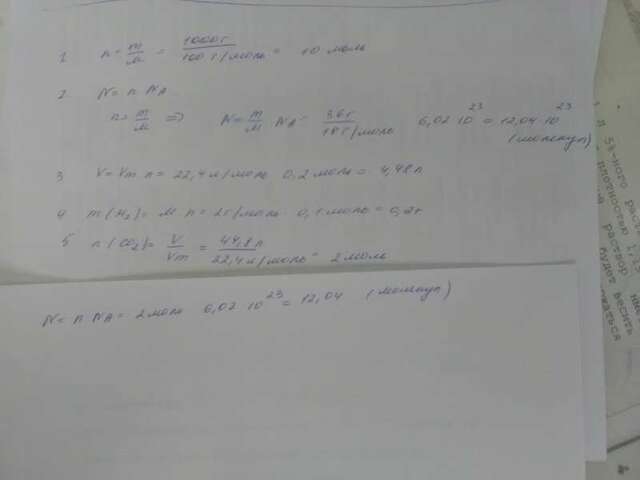 1 n = m/M = 1000г/100 г/моль = 10 моль
2 N = n NA
n = m/M => N = m/M NA = 36 г/18 г/моль 6,02 10^23 = 12,04 · 10^23
(молекул)
3 V = Vm n = 22,4 л/моль 0,2 моль = 4,48 л
4 m(H2) = M n = 2г/моль · 0,1 моль = 0,2г
5 n(CO2) = V/Vm = 44,8 л/22,4 л/моль = 2 моль
N = n NA = 2 моль 6,02 10^23 = 12,04 (молекул)
л 5%-ного
плотностью
раствор
будет весить